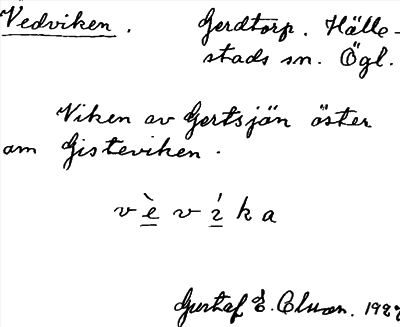 Vedviken. Gerdtorp. Hälle-
stads sn. Ögl.
Viken av Gertsjön öster
om Gisteviken.
v è v í k a
Gustaf E.